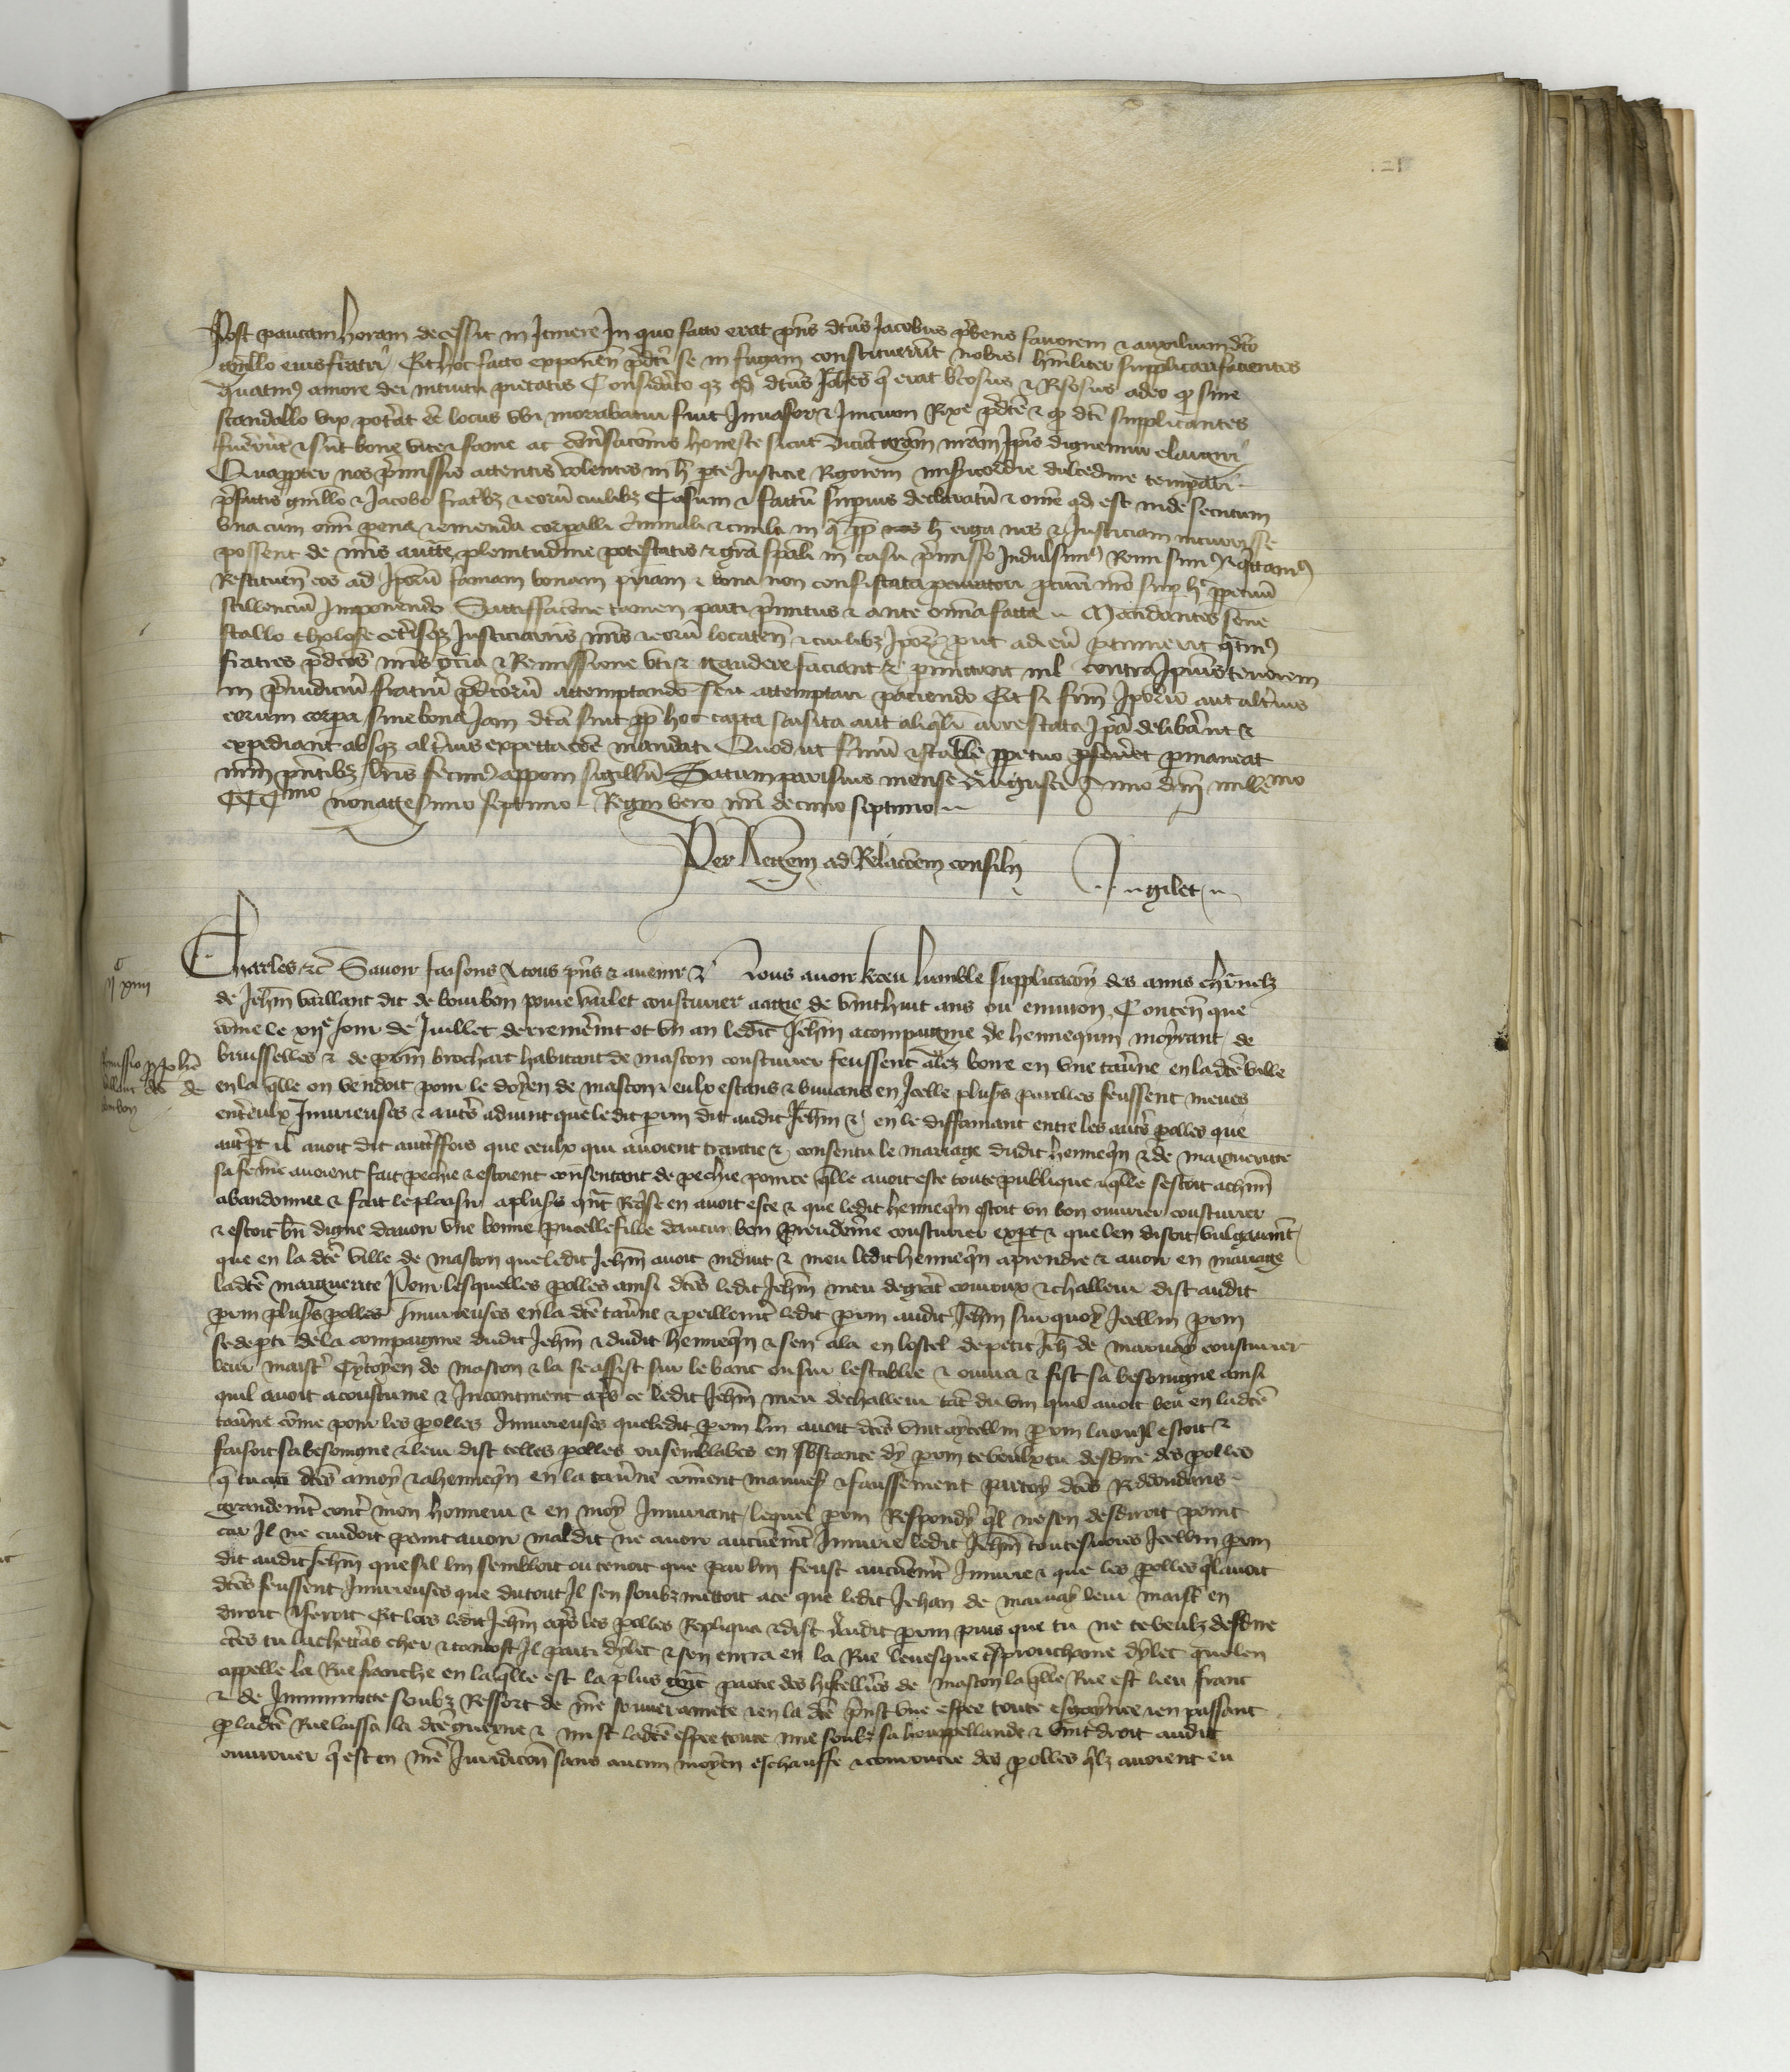 Post paucam horam decessit in Itinere In quo facto erat pns dcus Jacobus pbens favorem & auxilium dco
guillo eius fratri Et hoc facto exponen pdci se in fugam constituerunt nobis humiliter supplicari facientes
quatinus amore dei intuitu pietatis Considerato qz qd dcus Johes qui erat & Rixosus adeo qz sine
scandallo vix poterat esse locus ubi morabatur fuit Invasor & Inicior Rixe pdce & qz dci supplicantes
fuerunt & sunt bone vite & fame ac conversaconis honeste sicut dicunt gram nram Ipis dignemur elargiri
Quapropter nos pmissis attentis volentes in hac parte Justicie Rigorem misericordie dulcedine temperari
pfatis guillo & Jacobo fratribz & eorum cuilibz Casum & factum superius declaratum & omne qd est inde secutum
una cum omi pena & emenda corporali criminali & civili in qua pp hoc erga nos & Justiciam incurrisse
possent de nris auctte plenitudine potestatis & gra spali in casu pmisso Indulsimus Remisimus & quittamus
Restituen eos ad Iporum famam bonam priam & bona non confiscata procuratori nro super hoc ppetuum
silencium Imponendo Satisfacione tamen parti primitus & ante omnia facta Mandantes senes
callo tholose ceterisqz Justiciariis nris & eorum locaten & cuilibz Ipor prout ad eum ptinuerit quatinus
fratres pdcos nris gracia & Remissione uti & gaudere faciant & pmittant nil contra Ipius tenorem
in preiudicium fratrum pdcorum attemptando seu attemptari paciendo Et si Iporum aut alterius
eorum corpa sive bona Jam dca sint pp hoc capta saisita aut aliqualiter arrestata Ipa deliberent &
expediant absqz alterius expectacoe mandati Quod ut firmu & stabile ppetuo pseveret pmaneat
nrm pntibz lris fecimus apponi sigillum Datum parisius mense Augusti Anno dni mill mo
CCC mo nonagesimo septimo Regni vero nri decimo septimo
Per Regem ad Relacoem consilii
Jugilet
Charles &c Savoir faisons A tous pns & avenir & Nous avoir Receu lumble supplicacon des amis charnelz
de Jehn vaillant dit de bourbon povre varlet cousturier aagie de vinthuit ans ou environ Conten que
come le xije Jour de Juillet derrenierement ot un an ledit Jehn acompaigne de hennequin moyrant de
brusselles & de prin brochart habitant de mascon cousturier feussent alez boire en une taverne en ladce ville
en laqlle on vendoit pour le doyen de mascon & eulx estans & buvans en Icelle plusrs parolles feussent meues
entreulx Injurieuses & autres advint que ledit prin dit audit Jehn & en le diffamant entre les autres polles que
autrept il avoit dit autreffois que ceulx qui avoient traictie & consentu le mariage dudit henneqn & de marguerite
sa feme avoient fait pechie & estoient consentant de pechie pource qlle avoit este toute publique & qlle sestoit achm
abandonnee & fait le plaisir a plusrs gnt Reprse en avoit este & que ledit henneqn estoit un bon ouvrier cousturier
& estoit bn digne davoir une bonne pucelle fille daucun bon preudome cousturier expt & que len disoit vulgaumt
que en la dce ville de mascon que ledit Jehn avoit induit & meu ledit henneqn a prendre & avoir en mariage
ladce marguerite Pour lesquelles polles ainsi dces ledit Jehn meu de grant courroux & challeur dist audit
prin plusrs polles Injurieuses en la dce taverne & peillemt ledit prin audit Jehn sur quoy Icellui prin
se depti de la compaignie dudit Jehn & dudit henneqn & sen ala en lostel de petit Jeh de marnay cousturier
leur maistre Cytoyen de mascon & la se assist sur le banc ou sur lestablie & ouvra & fist sa besoingne ainsi
quil avoit acoustume & Incontinent aps ce ledit Jehn meu de challeur tat du vin quil avoit beu en ladce
taverne come pour les polles Injurieuses que ledit prin lui avoit dces vint aycellui prin la ou Il estoit &
faisoit sa besoingne & leur dist telles polles ou semblables en sbstance dy prin te veulx tu desdire des polles
q tu as dces a moy & a henneqn en la taverne coment mauves & faussement par toy dces Redondans
grandemt contre mon honneur & en moy Injuriant lequel prin Respondy ql ne sen desdiroit point
car Il ne cuidoit point avoir maldit ne avoir aucunemt Injurie ledit Jehn toutesvoies Icellui prin
dit audit Jehn que sil lui sembloit ou tenoit que par lui feust aucunemt Injurie & que les polles ql avoit
dces feussent Injurieuses que du tout Il sen soubzmettoit a ce que ledit Jehan de marnay leur maistre en
diroit & feroit Et lors ledit Jehn aps les polles Repliqua & dist Audit prin puis que tu ne te veulz desdire
certes tu lachetteras cher & tantost Il parti dylec & sen entra en la Rue levesque & prouchaine dylec que len
appelle la Rue franche en laqlle est la plus gnt partie des hostelliers de mascon laqlle Rue est lieu franc
& de Immunite soubz Ressort de nre souverainete & en la dce prinst une espee toute & en passant
p ladce Rue laissa la dce guerne & mist ladce espee toute nue soubz sa houppellande & vint droit audit
ouvrouer q est en nre Juridicon sans aucun moyen eschauffe & courroucie des polles qlz avoient eu
ij xiiij
Remissio p Johe
vaillant dco de
bourbon